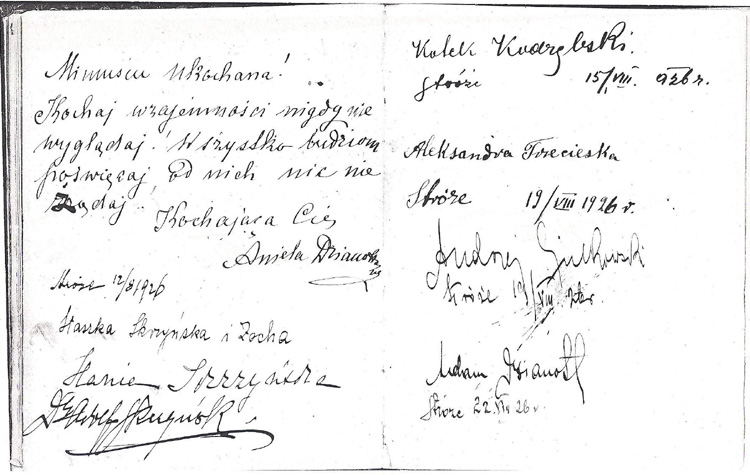 Mimusiu Ukochana!
Kochaj wzajemności nigdy nie
wyglądaj! Wszystko ludziom
poświęcaj, od nich nic nie
żądaj!
Kochająca Cię
Aniela Dzianott
Stróże 12/8 1926
Staszka Skrzyńska i Zocha
Hania Skrzyńska
Adolf Skrzyński
Kolek
Stróże 15/VIII. 926 r.
Aleksandra Trzecieska
Stróże 19/VIII 1926 r.
Andrzej Gutkowski
Stróże 19/VIII 26 r
Adam Dzianott
Stróże 22. 26 r.